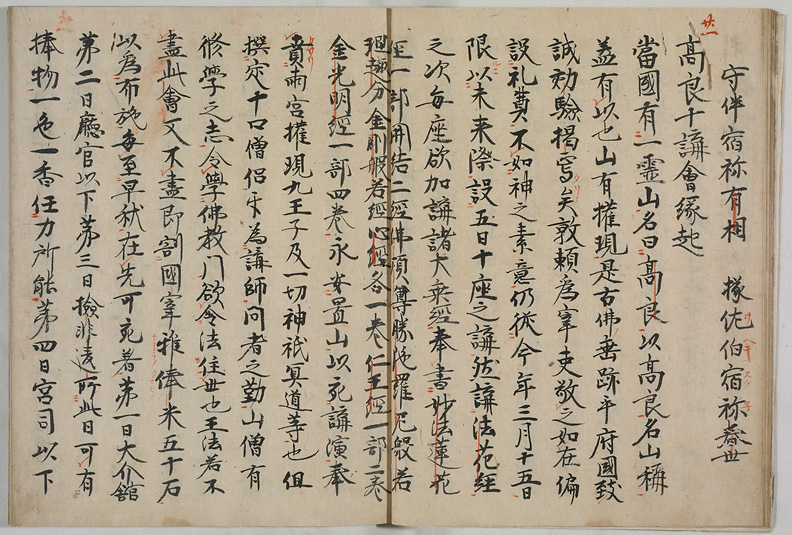 廿一
守伴宿祢有相 掾佐伯宿祢春世
高良十講會縁起
當國有一霊山名曰高良以高良名山稱
盖有以也山有權現是古佛垂跡乎府國致
誠効驗掲焉矣敦頼為宰吏敬之如在偏
設礼奠不如神之素意仍從今年三月十五日
限以未来際設五日十座之講説講法花経
之次毎座欲加講諸大乗經奉書妙法蓮花
經一部開結二經佛頂尊勝陀羅尼般若
理趣分金剛般若經心經各一巻仁王經一部二巻
金光明經一部四巻永安置山以宛講演奉
貴両宮權現九王子及一切神祇冥道等也但
撰定十口僧侶令為講師問者之勤山僧有
修學之志令學佛教門欲令法住世也王法若不
盡此會又不盡即割國宰雅俸米五十石
以為布施毎至早秋在先可宛著第一日大介舘
第二日廳官以下第三日撿非違所此日可有
捧物一色一香任力所能第四日宮司以下